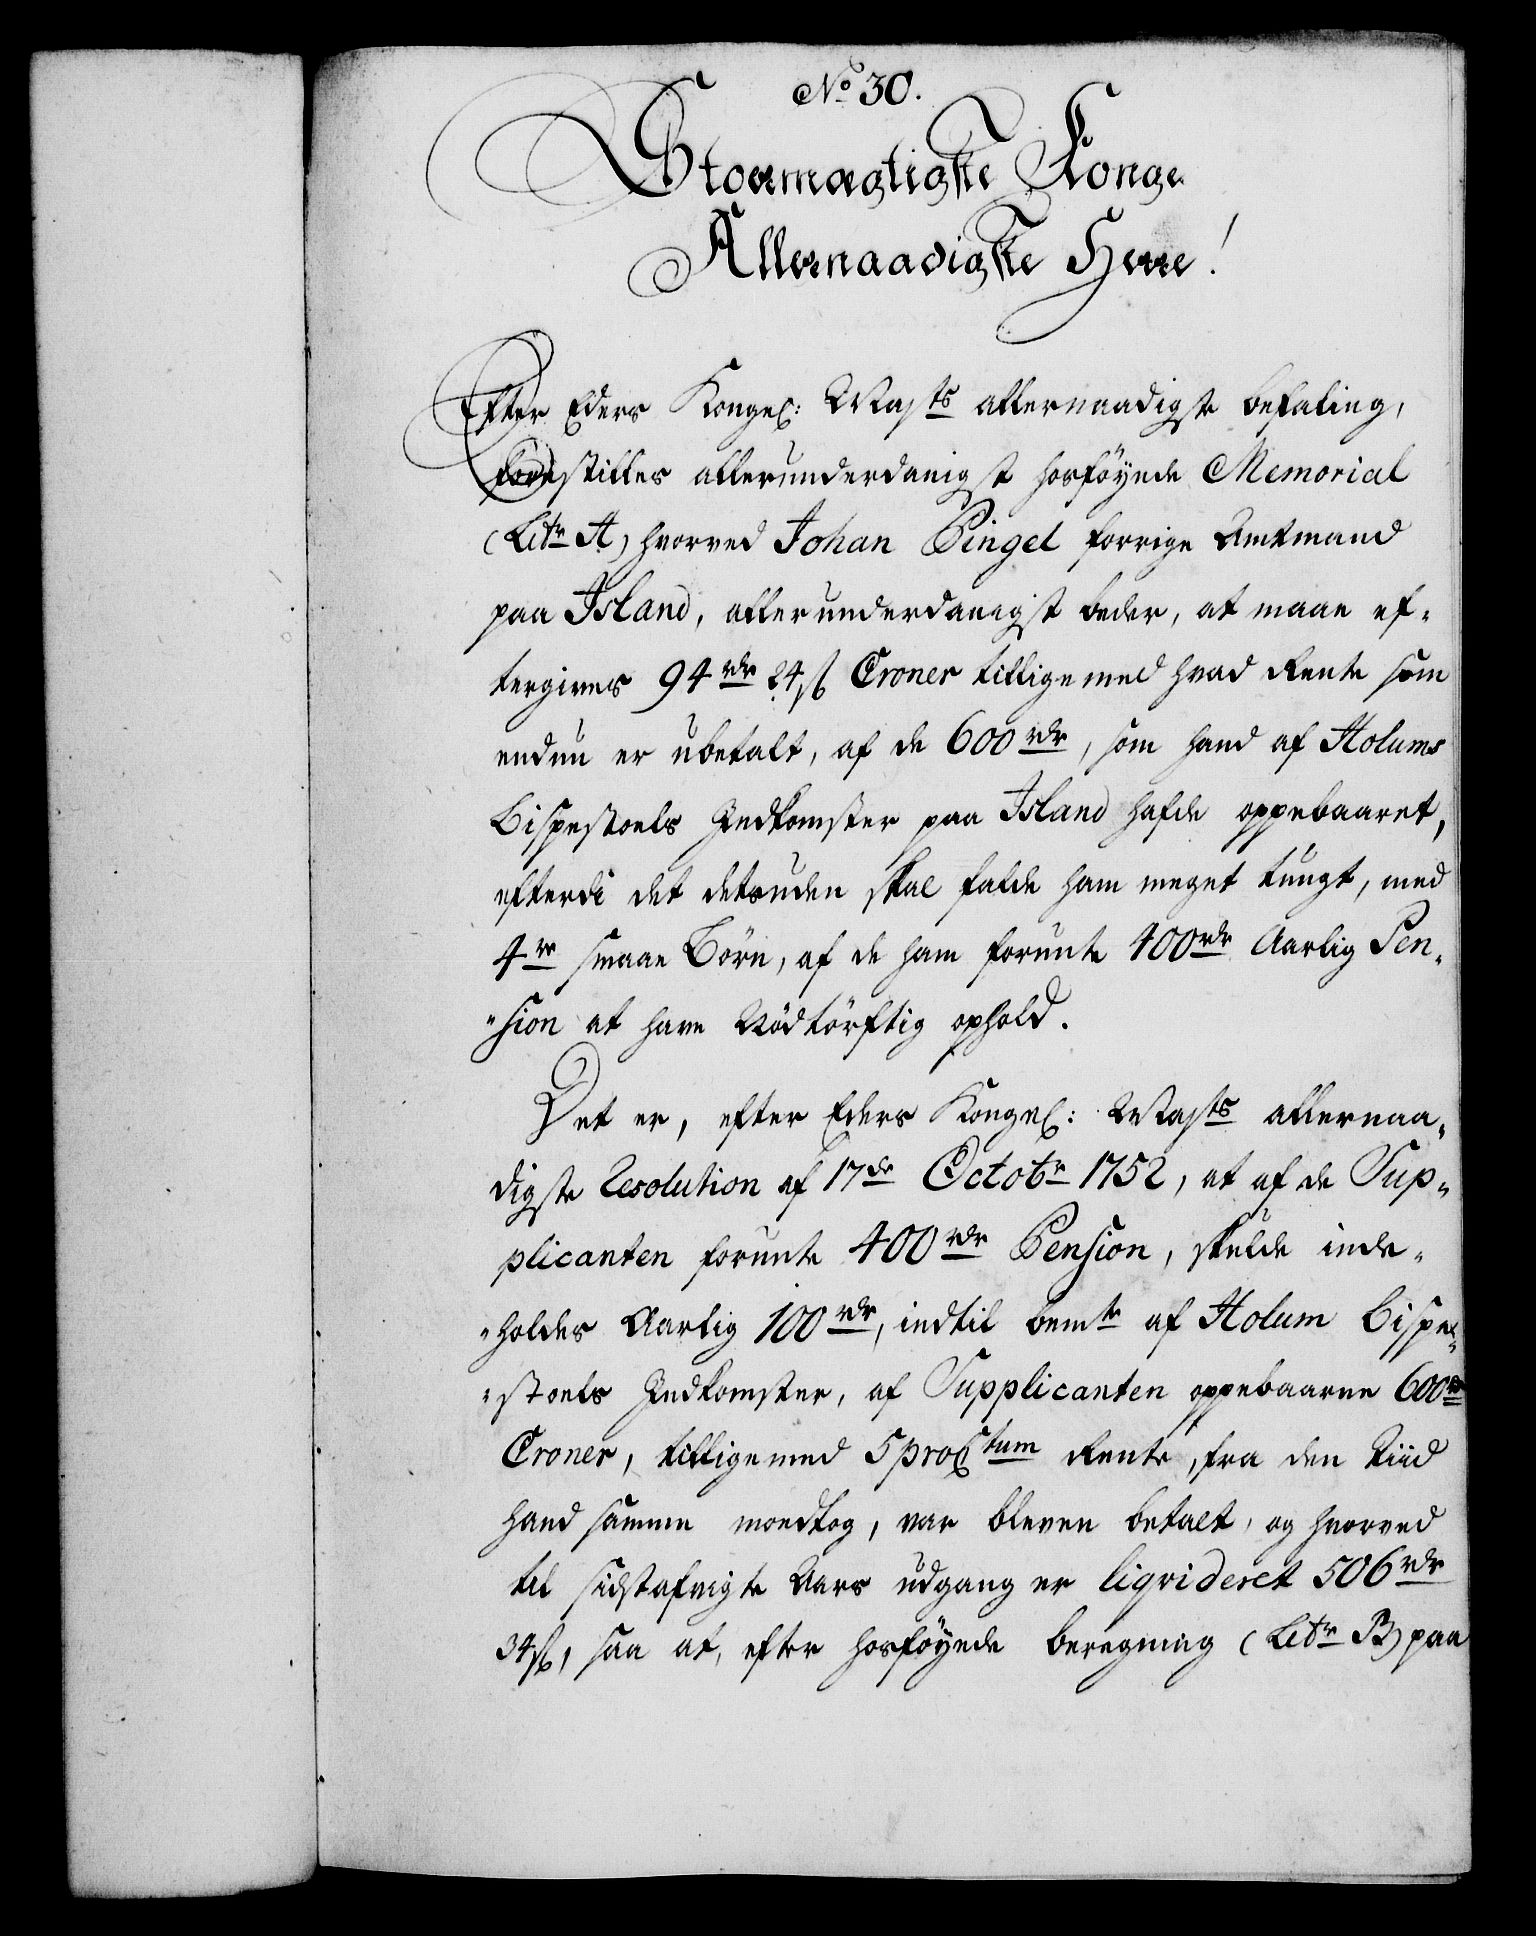 No 30.
Stoermægtigste Konge
Allernaadigste Herre!
Efter Eders Kongel: Majts allernaadigste befaling,
forestilles allerunderdanigst hosföyede Memorial
(Litr A) hvorved Johan Pingel forrige Amtmand
paa Island, allerunderdanigst beder, at maae ef-
tergives 94 rdr 24 ß Croner tilligemed hvad Rente som
endnu er ubetalt, af de 600 rdr, som hand af Holums
Bispestoels Indkomster paa Island hafde oppebaaret,
efterdi det desuden skal falde ham meget tungt, med
4re smaae Börn, af de ham forunte 400 rdr Aarlig Pen-
sion at have Nödtörftig ophold.
Det er, efter Eders Kongel: Majts allernaa-
digste Resolution af 17de Octobr 1752, at af de Sup-
plicanten forunte 400 rdr Pension, skulde inde-
holdes Aarlig 100 rdr, indtil bemte af Holum Bispe-
stoels Indkomster, af Supplicanten oppebaarne 600 rd
Croner, tilligemed 5 proCtum Rente, fra den Tiid
hand samme modtog, var bleven betalt, og hvorved
til sidstafvigte Aars udgang er liqvideret 506 rdr
34 ß, saa at, efter hosföyede beregning (Litr B) paa